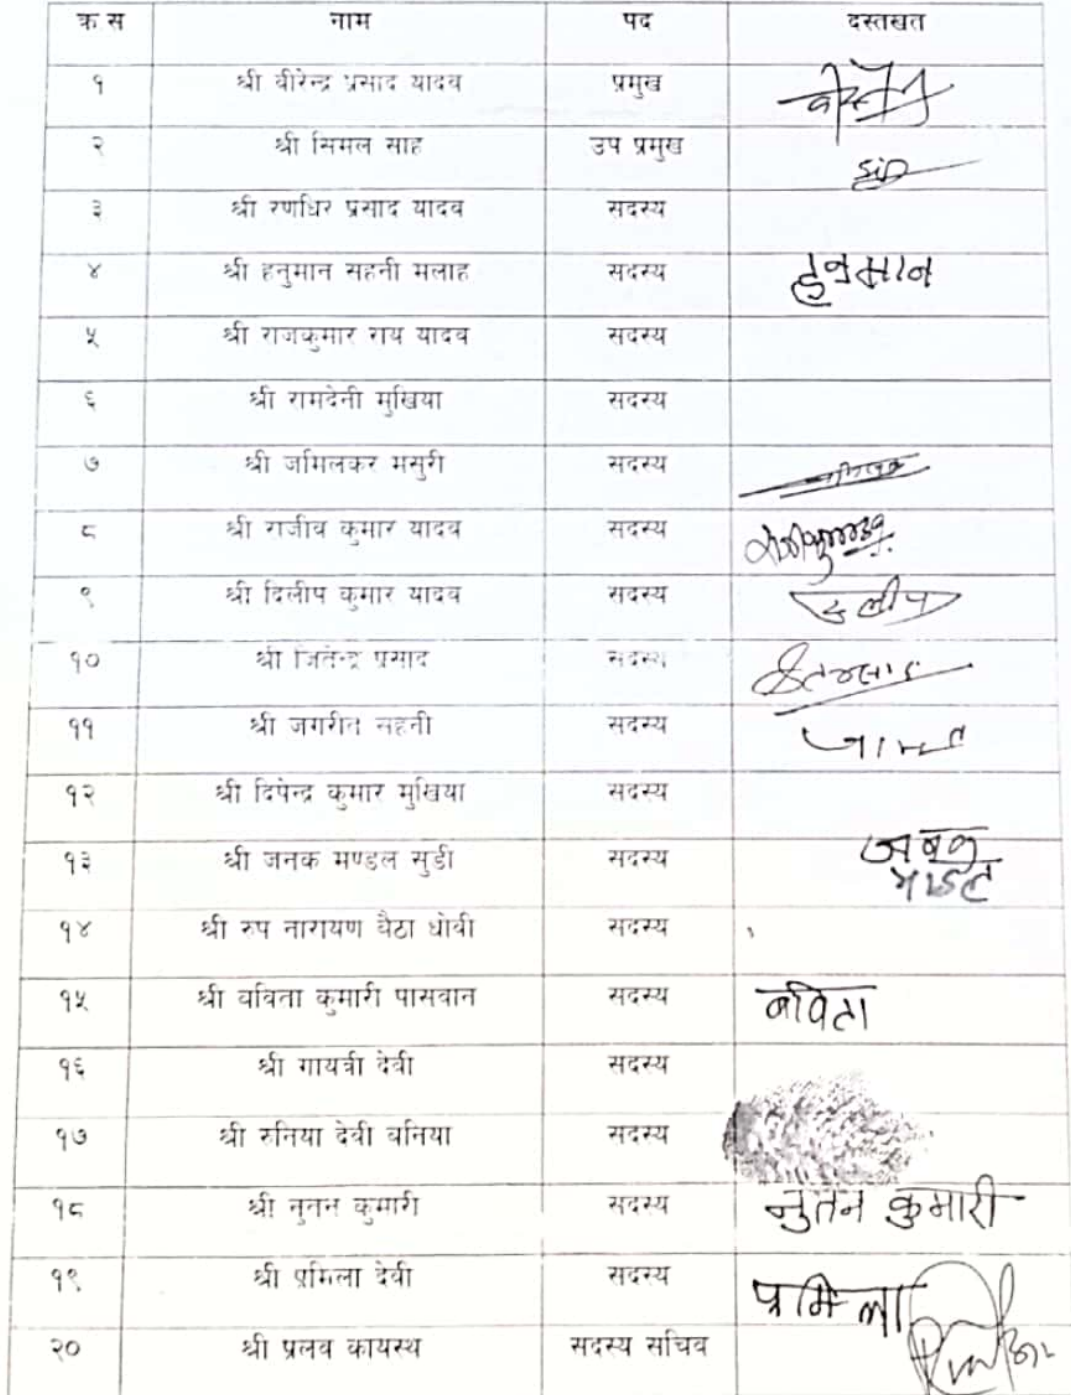 क्र स नाम पद दस्तखत
१ श्री वीरेन्द्र प्रसाद यादव प्रमुख
२ श्री सिमल साह उप प्रमुख
३ श्री रणधिर प्रसाद यादव सदस्य
४ श्री हनुमान सहनी मलाह सदस्य हनुमान
५ श्री राजकुमार राय यादव सदस्य
६ श्री रामदेनी मुखिया सदस्य
७ श्री जमिलकर मसुरी सदस्य
८ श्री राजीव कुमार यादव सदस्य
९ श्री दिलीप कुमार यादव सदस्य दलीप
१० श्री जितेन्द्र प्रसाद सदस्य
११ श्री जगरीत सहनी सदस्य
१२ श्री दिपेन्द्र कुमार मुखिया सदस्य
१३ श्री जनक मण्डल सुडी सदस्य जनक
मण्डल
१४ श्री रुप नारायण बैठा धोबी सदस्य
१५ श्री बविता कुमारी पासवान सदस्य बविता
१६ श्री गायत्री देवी सदस्य
१७ श्री रुनिया देवी बनिया सदस्य
१८ श्री नुनन कुमारी सदस्य नुतन कुमारी
१९ श्री प्रमिला देवी सदस्य प्रमिला
२० श्री प्रलव कायस्थ सदस्य सचिव